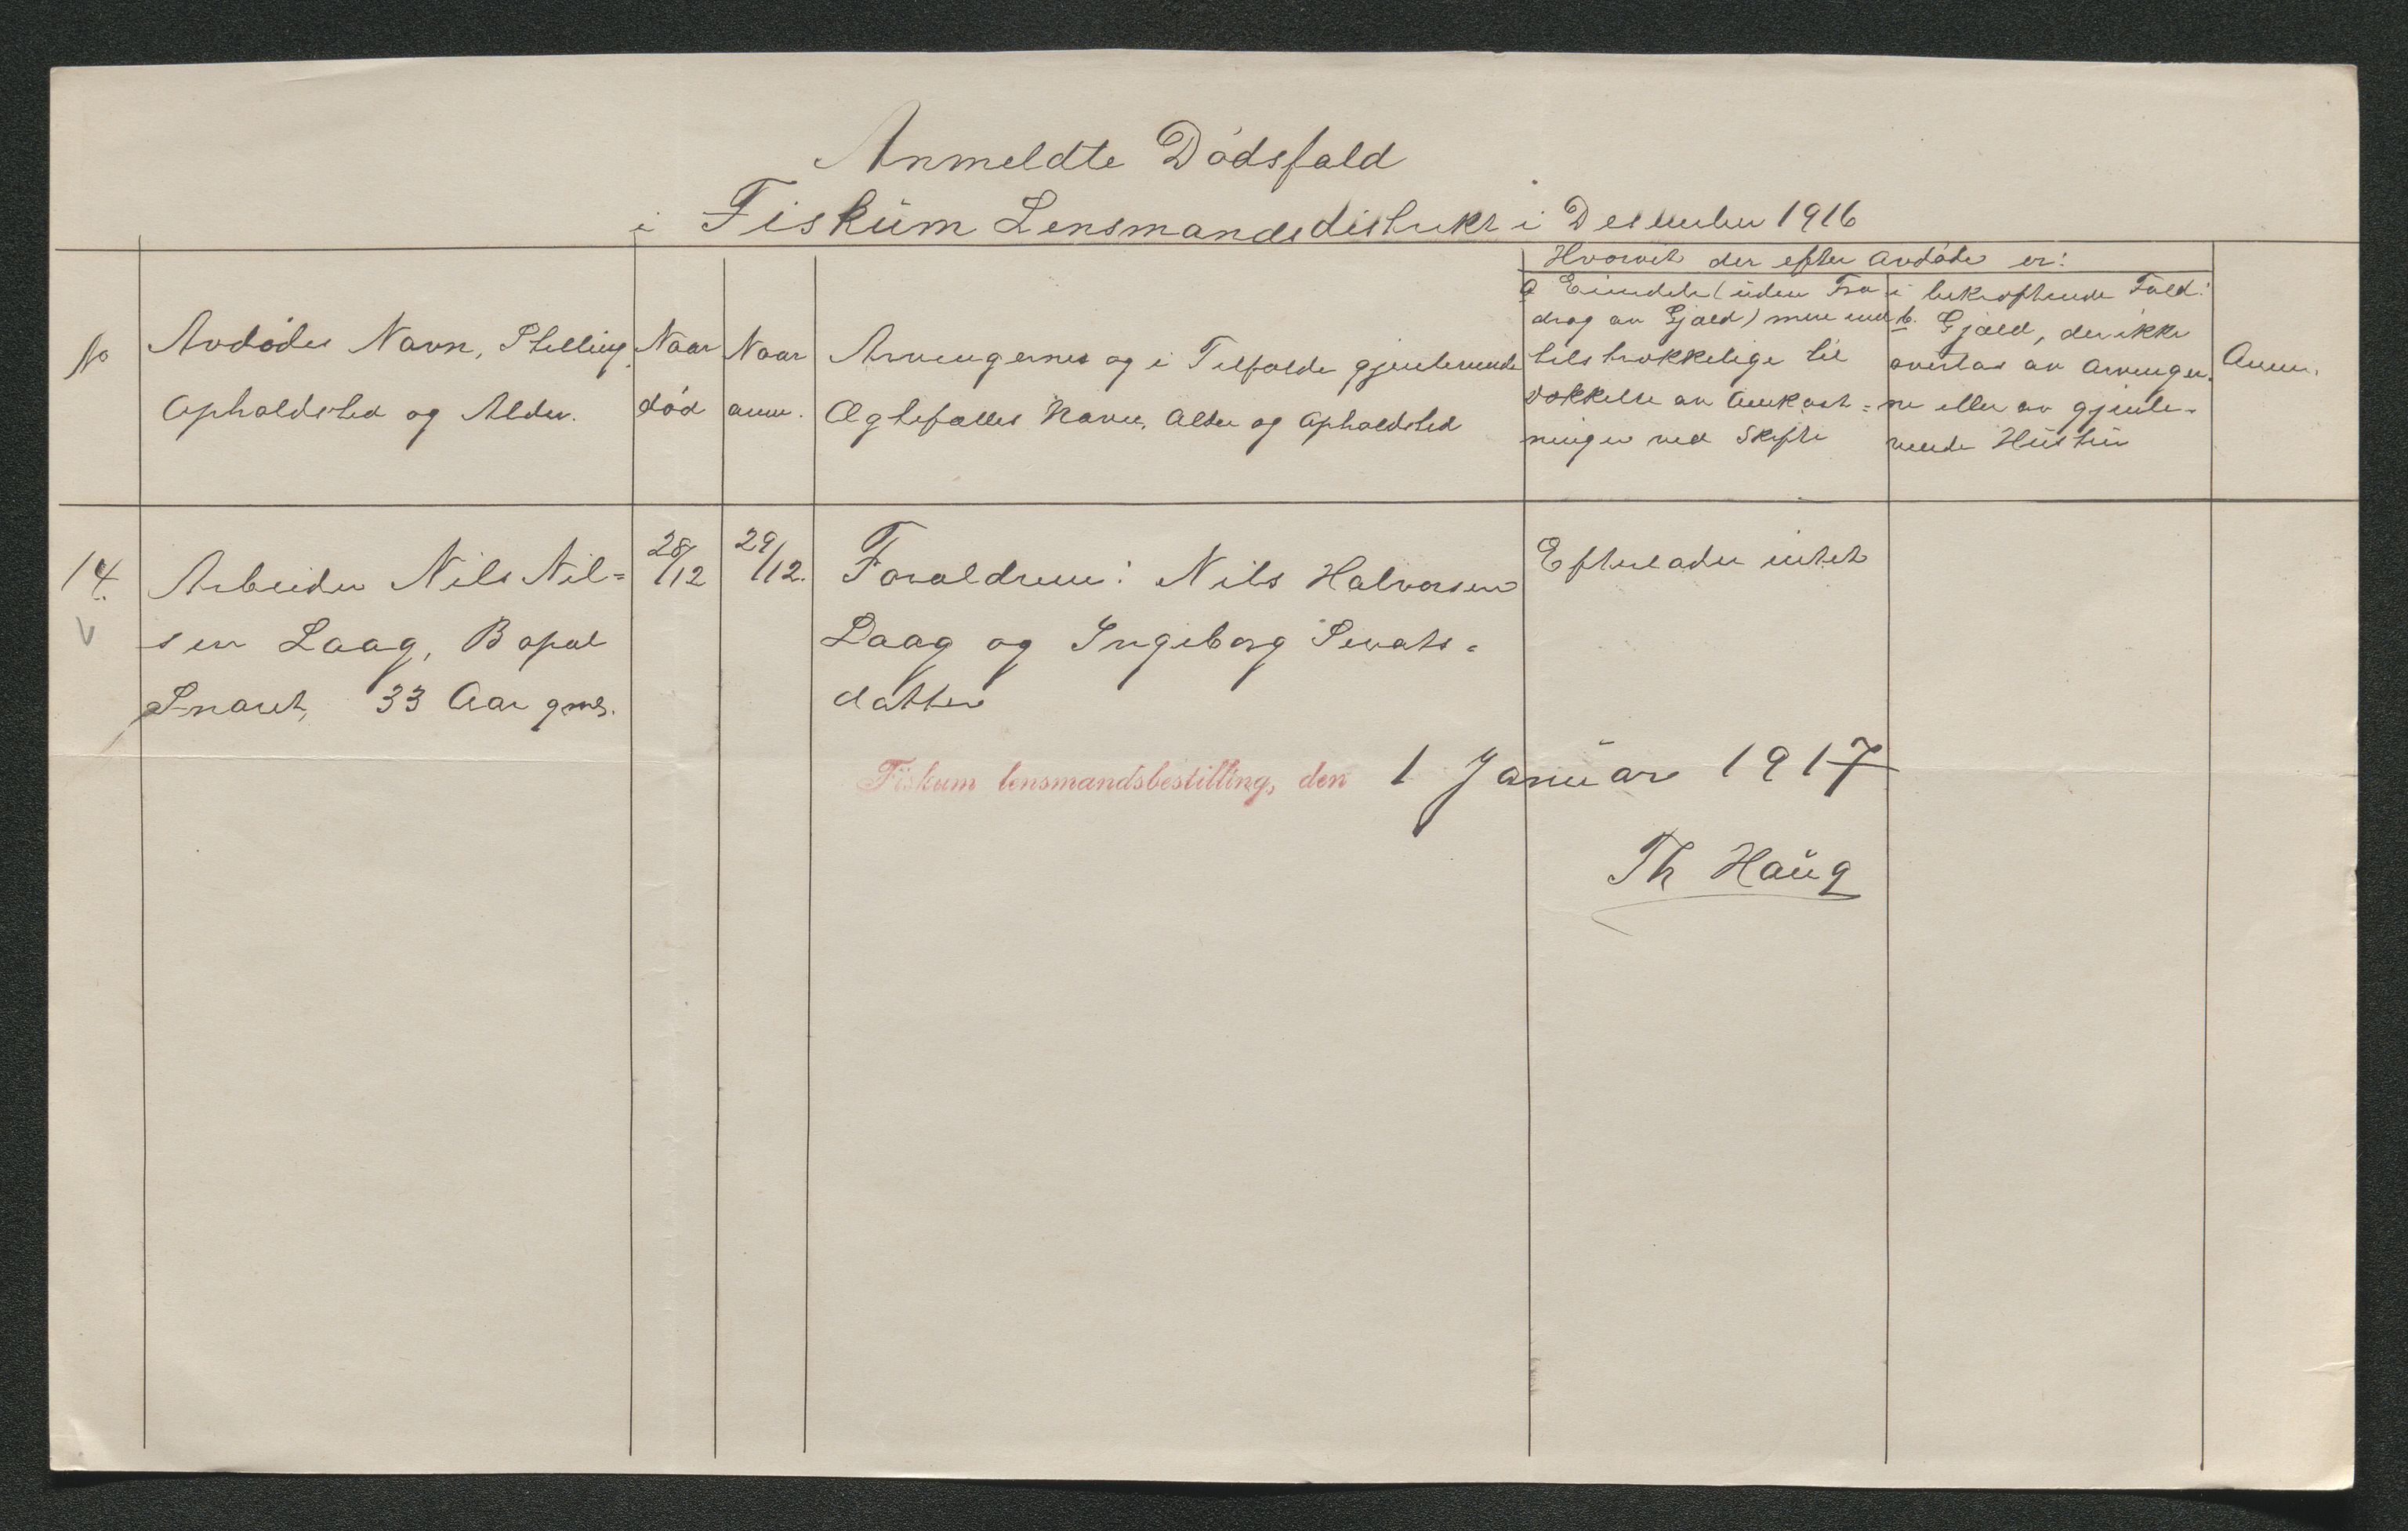 Anmeldte Dödsfald
i Fiskum Lensmandsdistrikt i December 1916
No
Avdödes Navn, Stilling,
Opholdsted og Alder.
Naar
död
Naar
anm.
Arvingernes og i Tilfælde gjenlevende
Ægtefælles Navn, Alder og Opholdsted
Hvorvidt der efter avdöde er:
a Eiendele (uden Fra
drag av Gjæld) mere end
tilstrækkelige til
Dækkelse av Omkost=
ninger ved Skifte
i bekræftende Fald:
b. Gjæld, der ikke
overtas av Arvinger.
ne eller av gjenle-
vende Hustru
Anm.
14.
Arbeider Nils Nil=
sen Laag, Bopæl
Snaret, 33 Aar gml.
28/12
29/12.
Forældrene: Nils Halvorsen
Laag og Ingeborg
datter
Efterlader intet
Fiskum lensmandsbestilling, den 1 Januar 1917
Th Haug